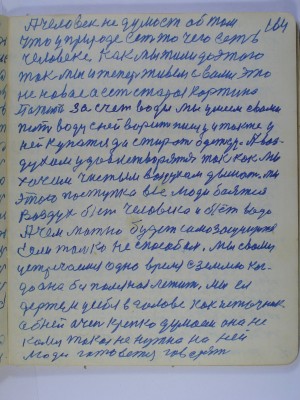 А человек не думает об том 164
что у природе есть то чего есть в
человеке Как мы жили до этого
так мы и теперь живем с вами это
не новае а есть старая картина
За счет воды мы умеем свами
пить воду с ней варить пищу и также у
ней купатся да стирать одежду. А воз-
духом удовлетворятся так как мы
хочем чистым воздухом двигат. мы
этого поступка все люди боятся
Воздух бьет человека и бьет вода
А чем можно будет самозащищатся
если только не способная. Мы свами
устречаемся одно время с землею ког-
да она бы полезная лежит, мы ее
держем у себя в голове как источник
а об ней очен крепко думаем она не
кали такой не нужна на ней
люди готовятся говорят